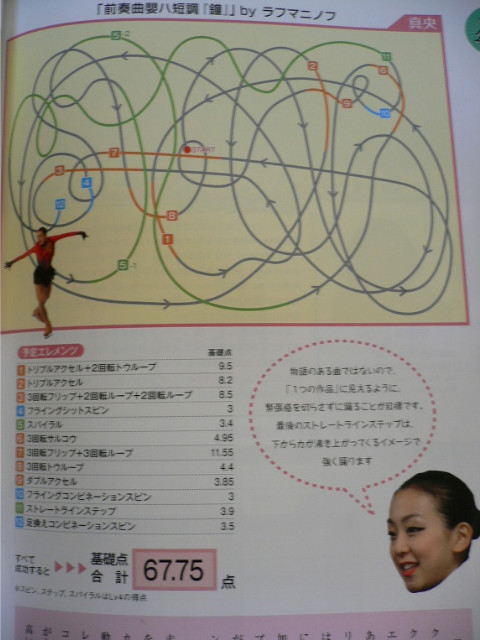 「前奏曲嬰ハ短調『鐘』」by ラフマニノフ
真央
5-2
11
2
6
9
10
START!!
7
3
4
12
8
1
5-1
予定エレメンツ
基礎点
1 トリプルアクセル+2回転トウループ 9.5
2 トリプルアクセル 8.2
3 3回転フリップ+2回転ループ+2回転ループ 8.5
4 フライングシットスピン 3
5 スパイラル 3.4
6 3回転サルコウ 4.95
7 3回転フリップ+3回転ループ 11.55
8 3回転トウループ 4.4
9 ダブルアクセル 3.85
10 フライングコンビネーションスピン 3
11 ストレートラインステップ 3.9
12 足換えコンビネーションスピン 3.5
物語のある曲ではないので、
「1つの作品」に見えるように、
緊張感を切らさずに踊ることが目標です。
最後のストレートラインステップは、
下から力が湧き上がってくるイメージで
強く踊ります
すべて
成功すると
基礎点
合計
67.75
点
※スピン、ステップ、スパイラルはLv4の得点